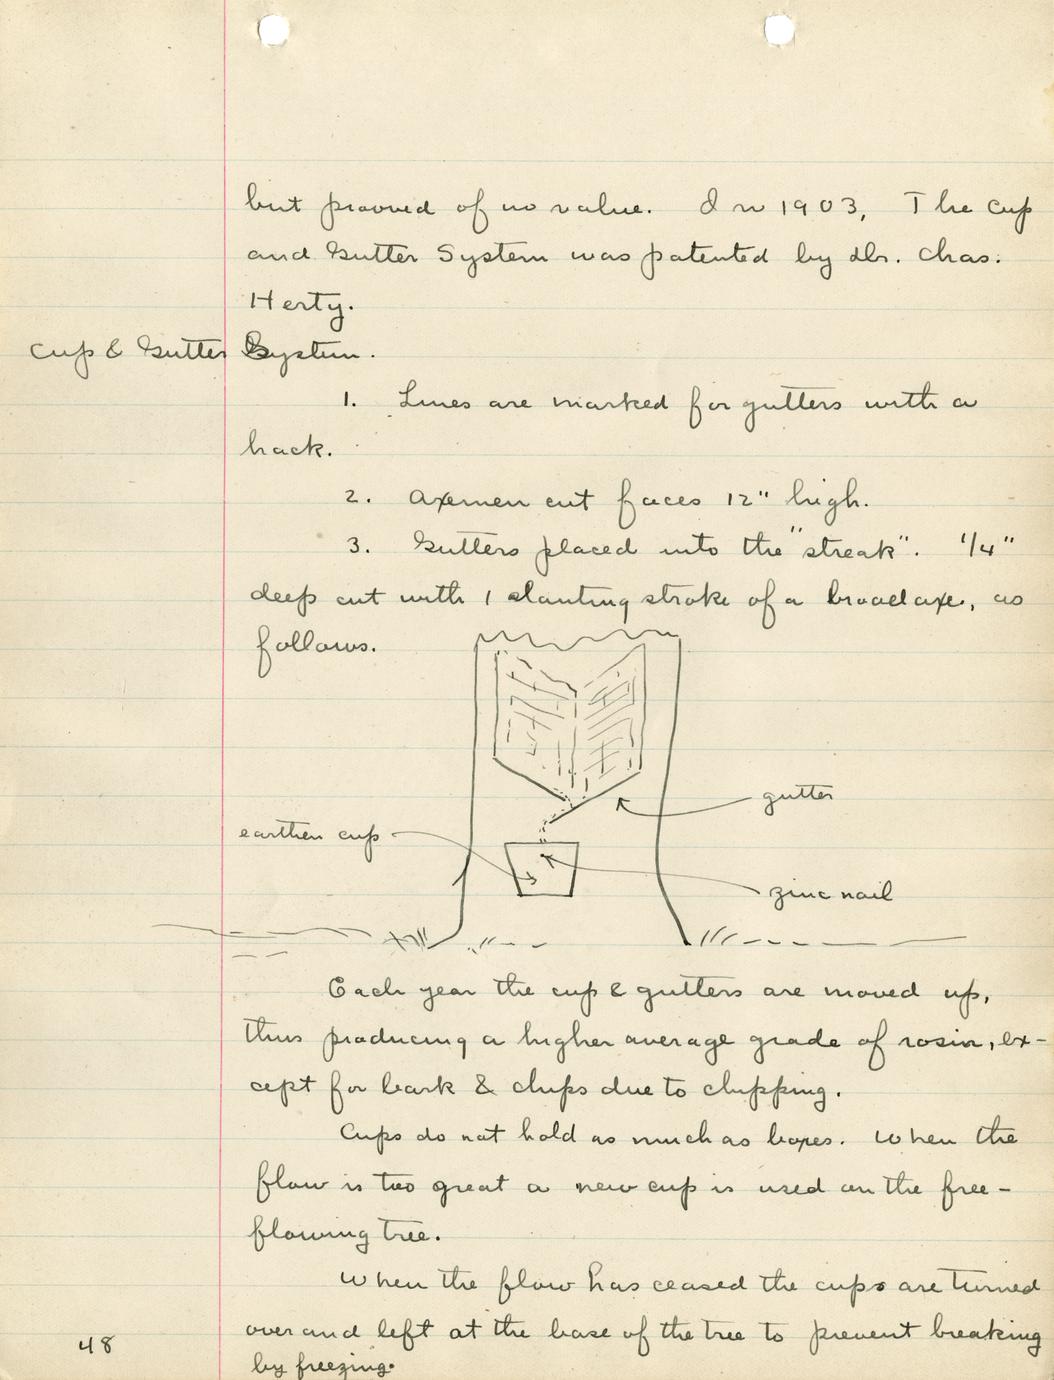 but prooved of no value. In 1903, The Cup
and Gutter System was patented by Dr. Chas.
Herty.
Cup & Gutter System.
1. Lines are marked for gutters with a
hack.
2. Axemen cut faces 12" high.
3. Gutters placed into the "streak". 1/4"
deep cut with 1 slanting stroke of a broadaxe, as
follows.
gutter
earthen cup
zinc nail
Each year the cup & gutters are moved up,
thus producing a higher average grade of rosin, ex-
cept for bark & chips due to chipping.
Cups do not hold as much as boxes. When the
flow is too great a new cup is used on the free-
flowing tree.
When the flow has ceased the cups are turned
over and left at the base of the tree to prevent breaking
by freezing.
48